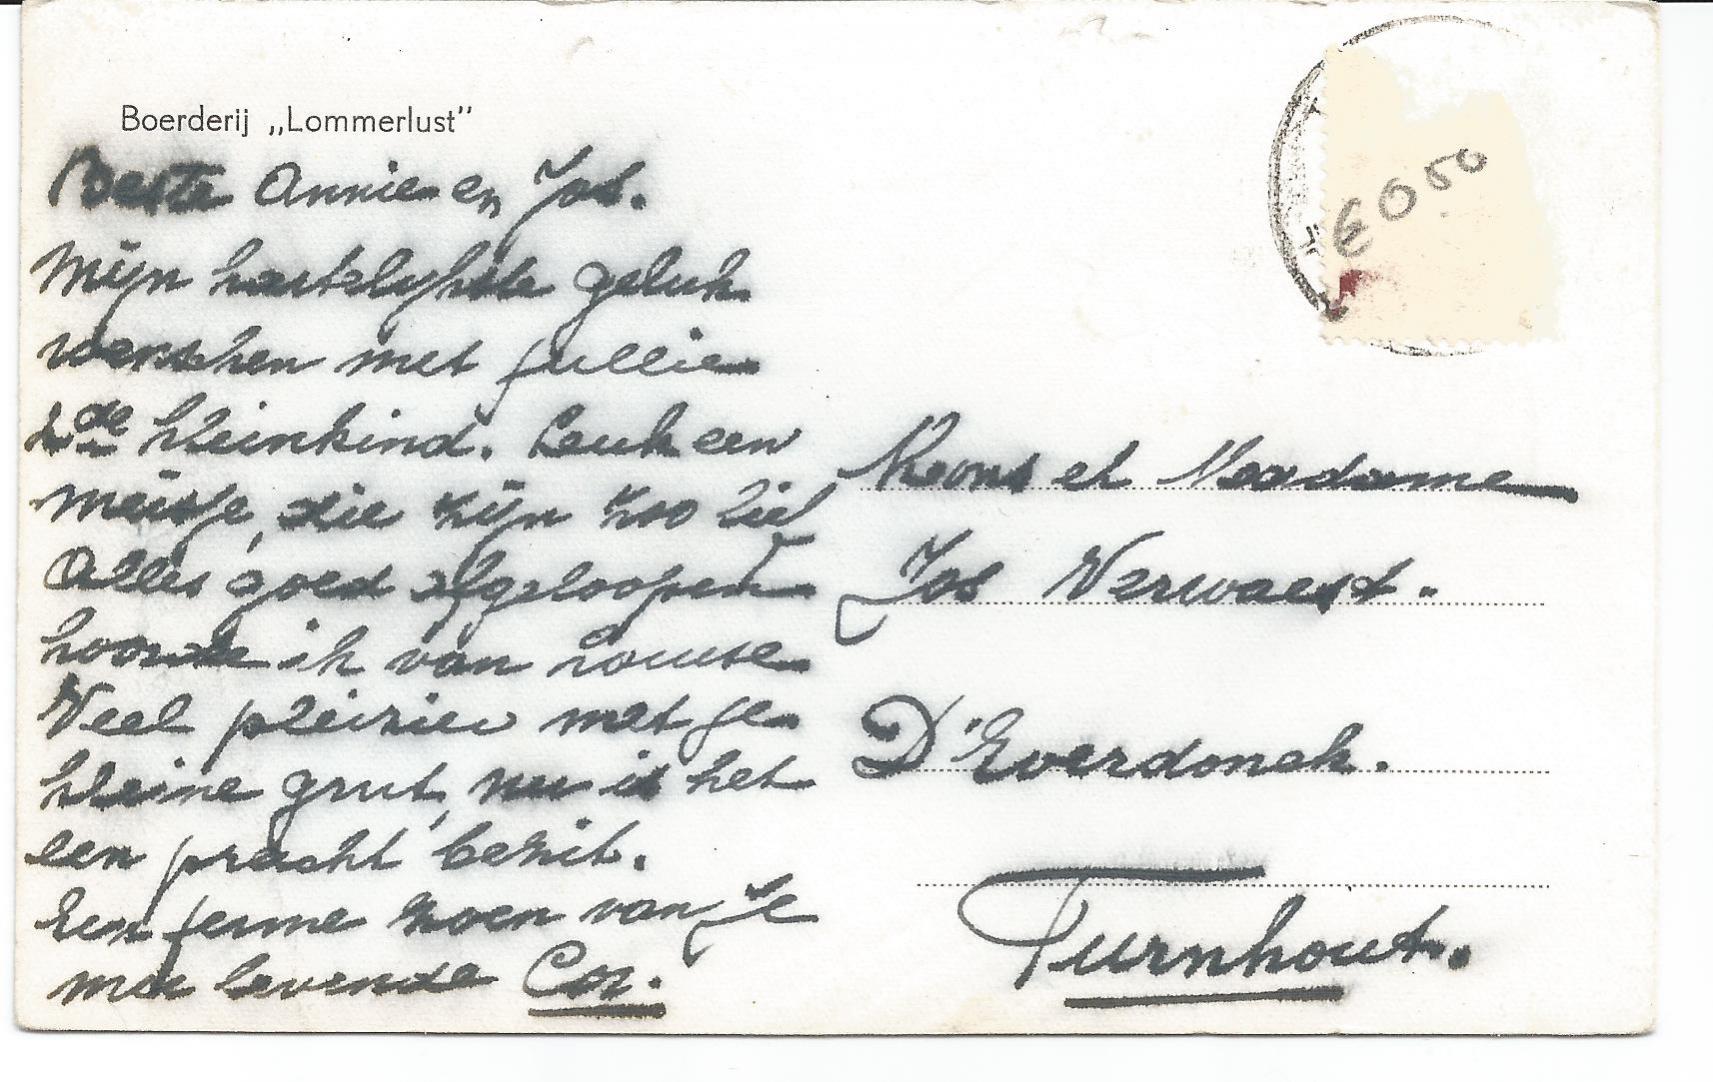 Boerderij „Lommerlust”
Beste Annie en Jos.
Mijn hartelijkste geluk
wenschen met jullie
2de kleinkind. Leuk een
meisje, die zijn zoo lief
Alles goed afgeloopen
hoorde ik van Louise
Veel pleizier met je
kleine grut, nu is het
een pracht bezit.
Een ferme zoen van je
mee levende Cor.
€ 0 50
Mons et Madame
Jos Verwaest.
D'Everdonck.
Turnhout.